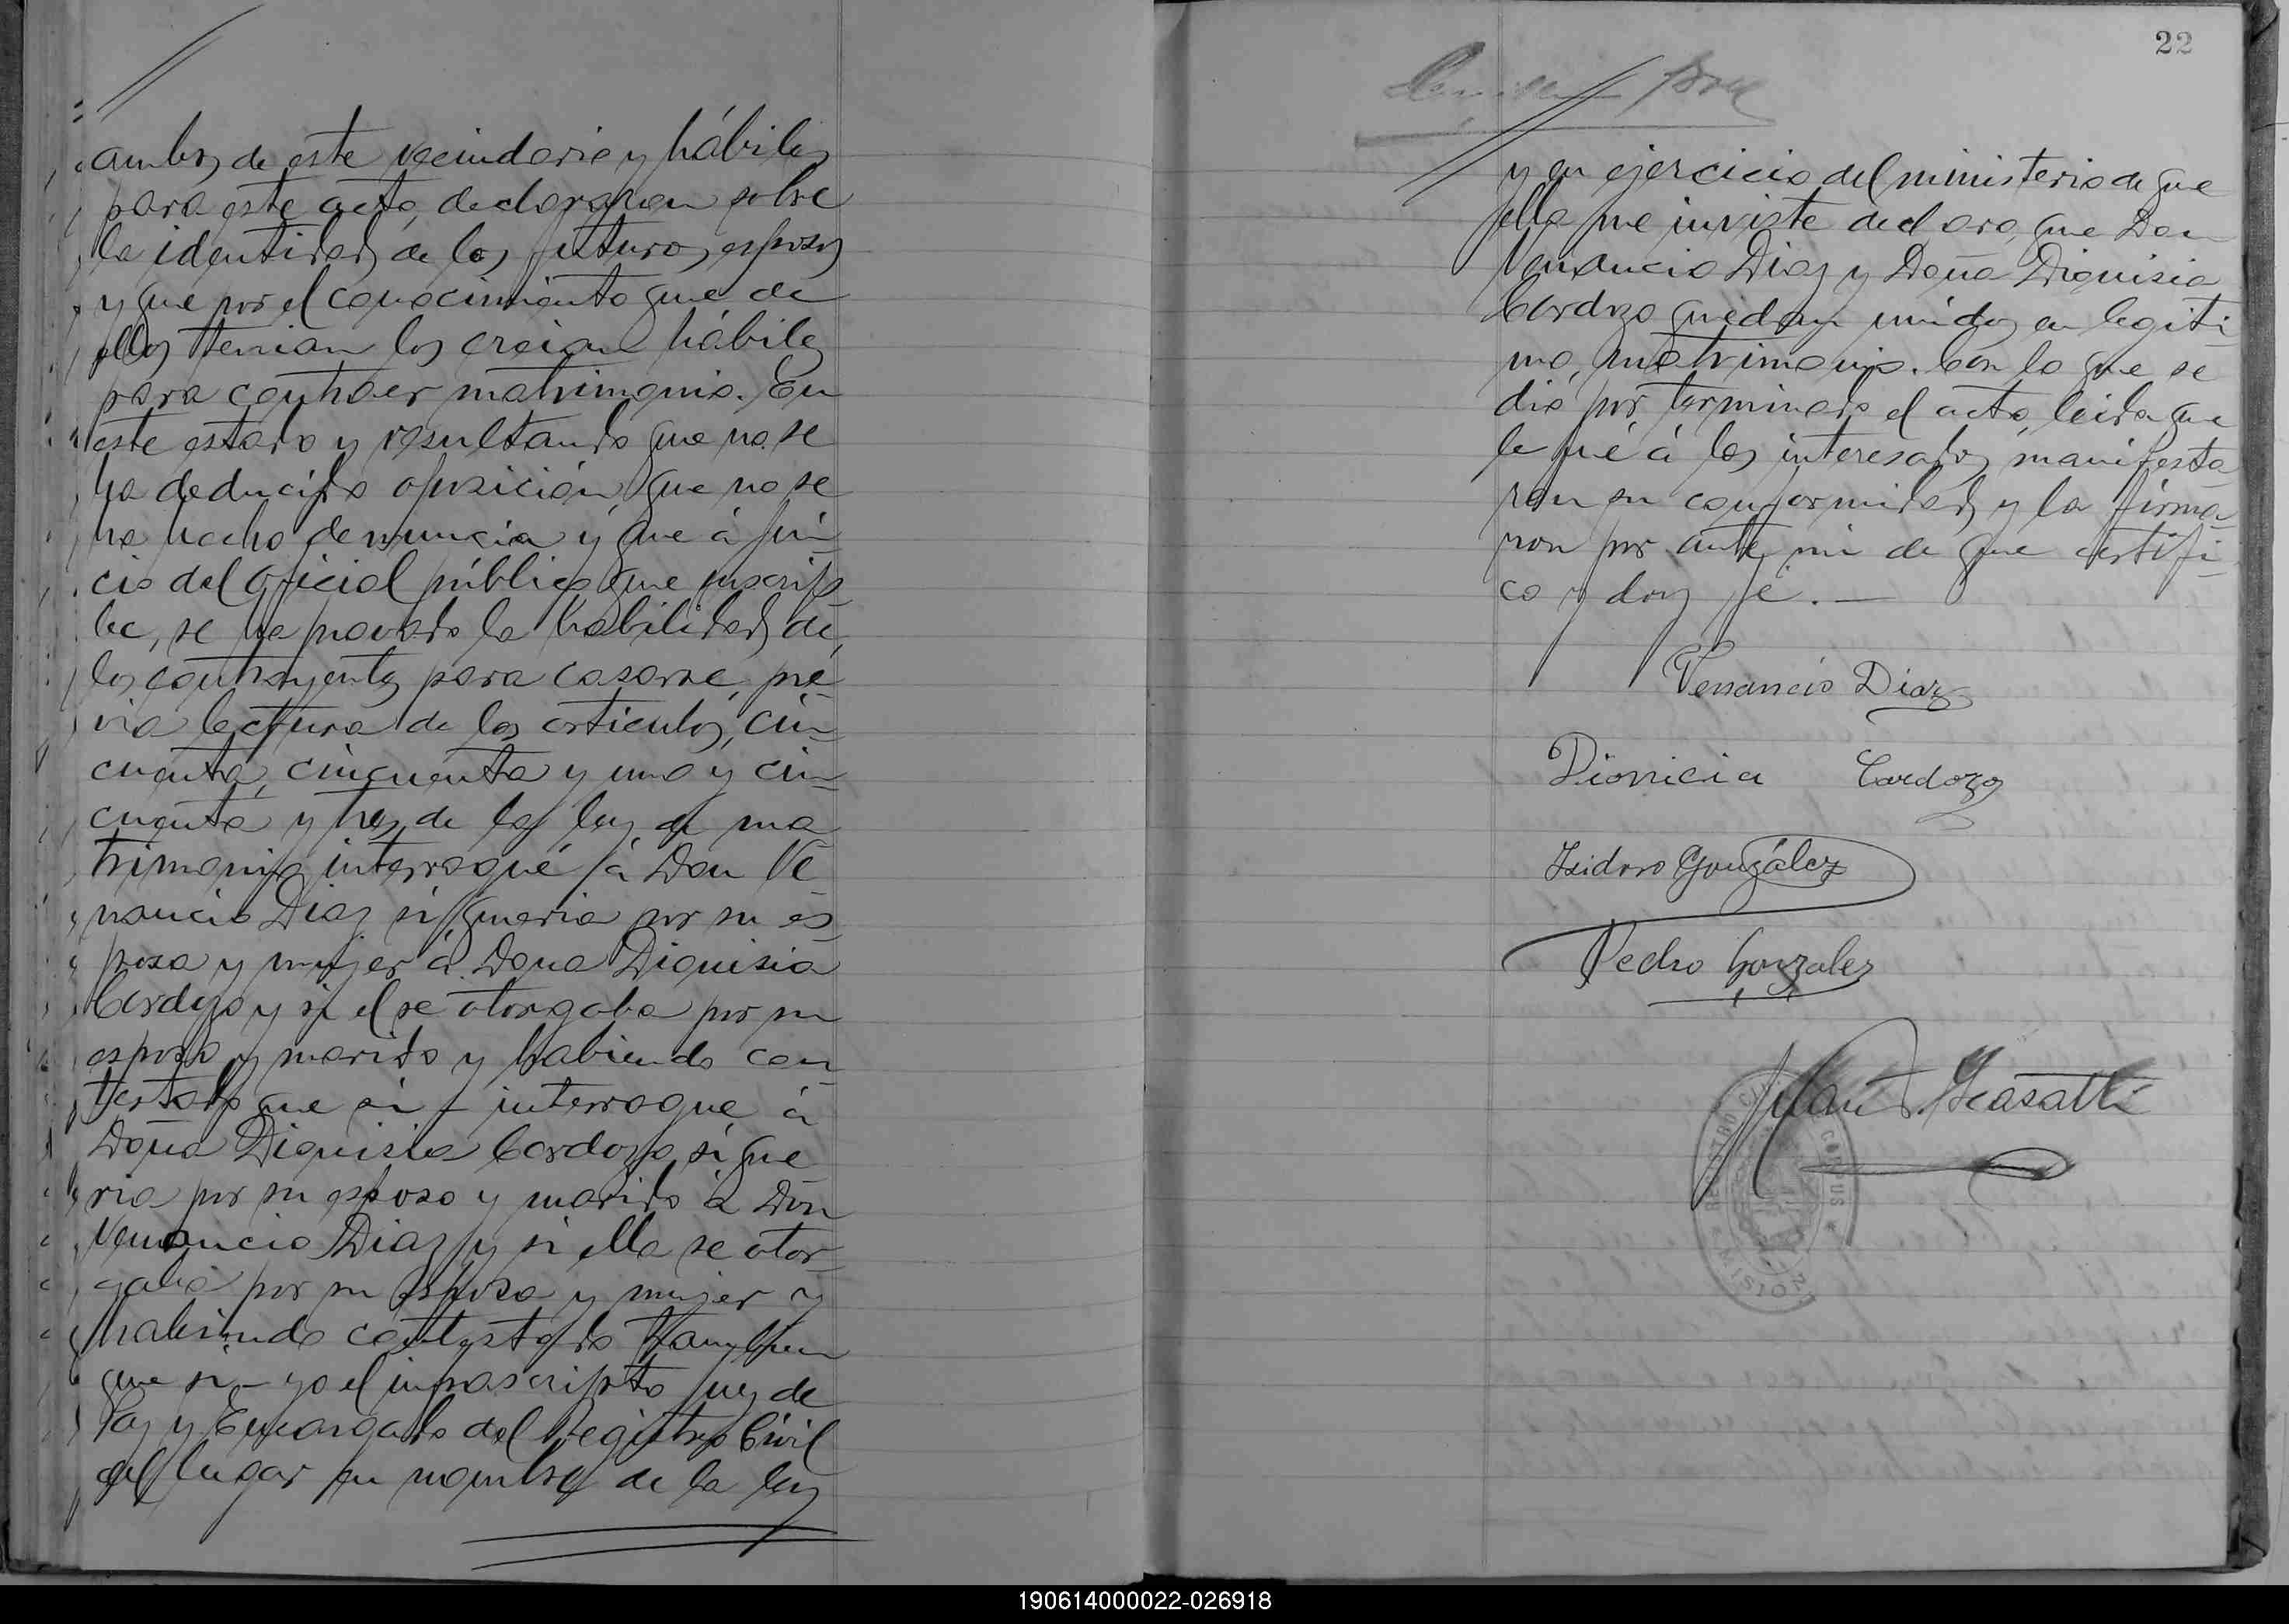 ambos de este vecindario y hábiles
para este acto, declararon sobre
la identidad de los futuros esposos
y que por el conocimiento que de
ellos tenian los creian hábiles
para contraer matrimonio. En
este estado y resultando que no se
ha deducido oposición, que no se
ha hecho denuncia y que á jui-
cio del oficial público que suscri-
be, se ha probado la habilidad de
los contrayentes para casarse, pré-
via lectura de los articulos, cin-
cuenta, cincuenta y uno y cin-
cuenta y tres de la ley de ma-
trimonio interrogué á Don Ve-
nancio Diaz si queria por su es-
posa y mujer á Doña Dionisia
Cardozo y si el se otorgaba por su
esposo y marido y habiendo con-
testado que si - interrogue á
Doña Dionisia Cardozo si que-
ria por su esposo y marido á Don
Venancio Diaz y si ella se otor-
gaba por su esposa y mujer y
habiendo contestado tambien
que si - yo el infrascripto Juez de
Paz y Encargado del Registro Civil
del lugar en nombre de la ley
22
y en ejercicio del ministerio de que
ella me inviste declaro, que Don
Venancio Diaz y Doña Dionisia
Cardozo quedan unidos en legiti-
mo, matrimonio. Con lo que se
dió por terminado el acto, leida que
le fué á los interesados manifesta-
ron su conformidad y la firma-
ron por ante mi de que certifi-
co y doy fé.—
Venancio Diaz
Dionicia Cardozo
Isidoro González
Pedro Gonzalez
Juan
REGISTRO CIVIL CORPUS
MISIONES
190614000022-026918